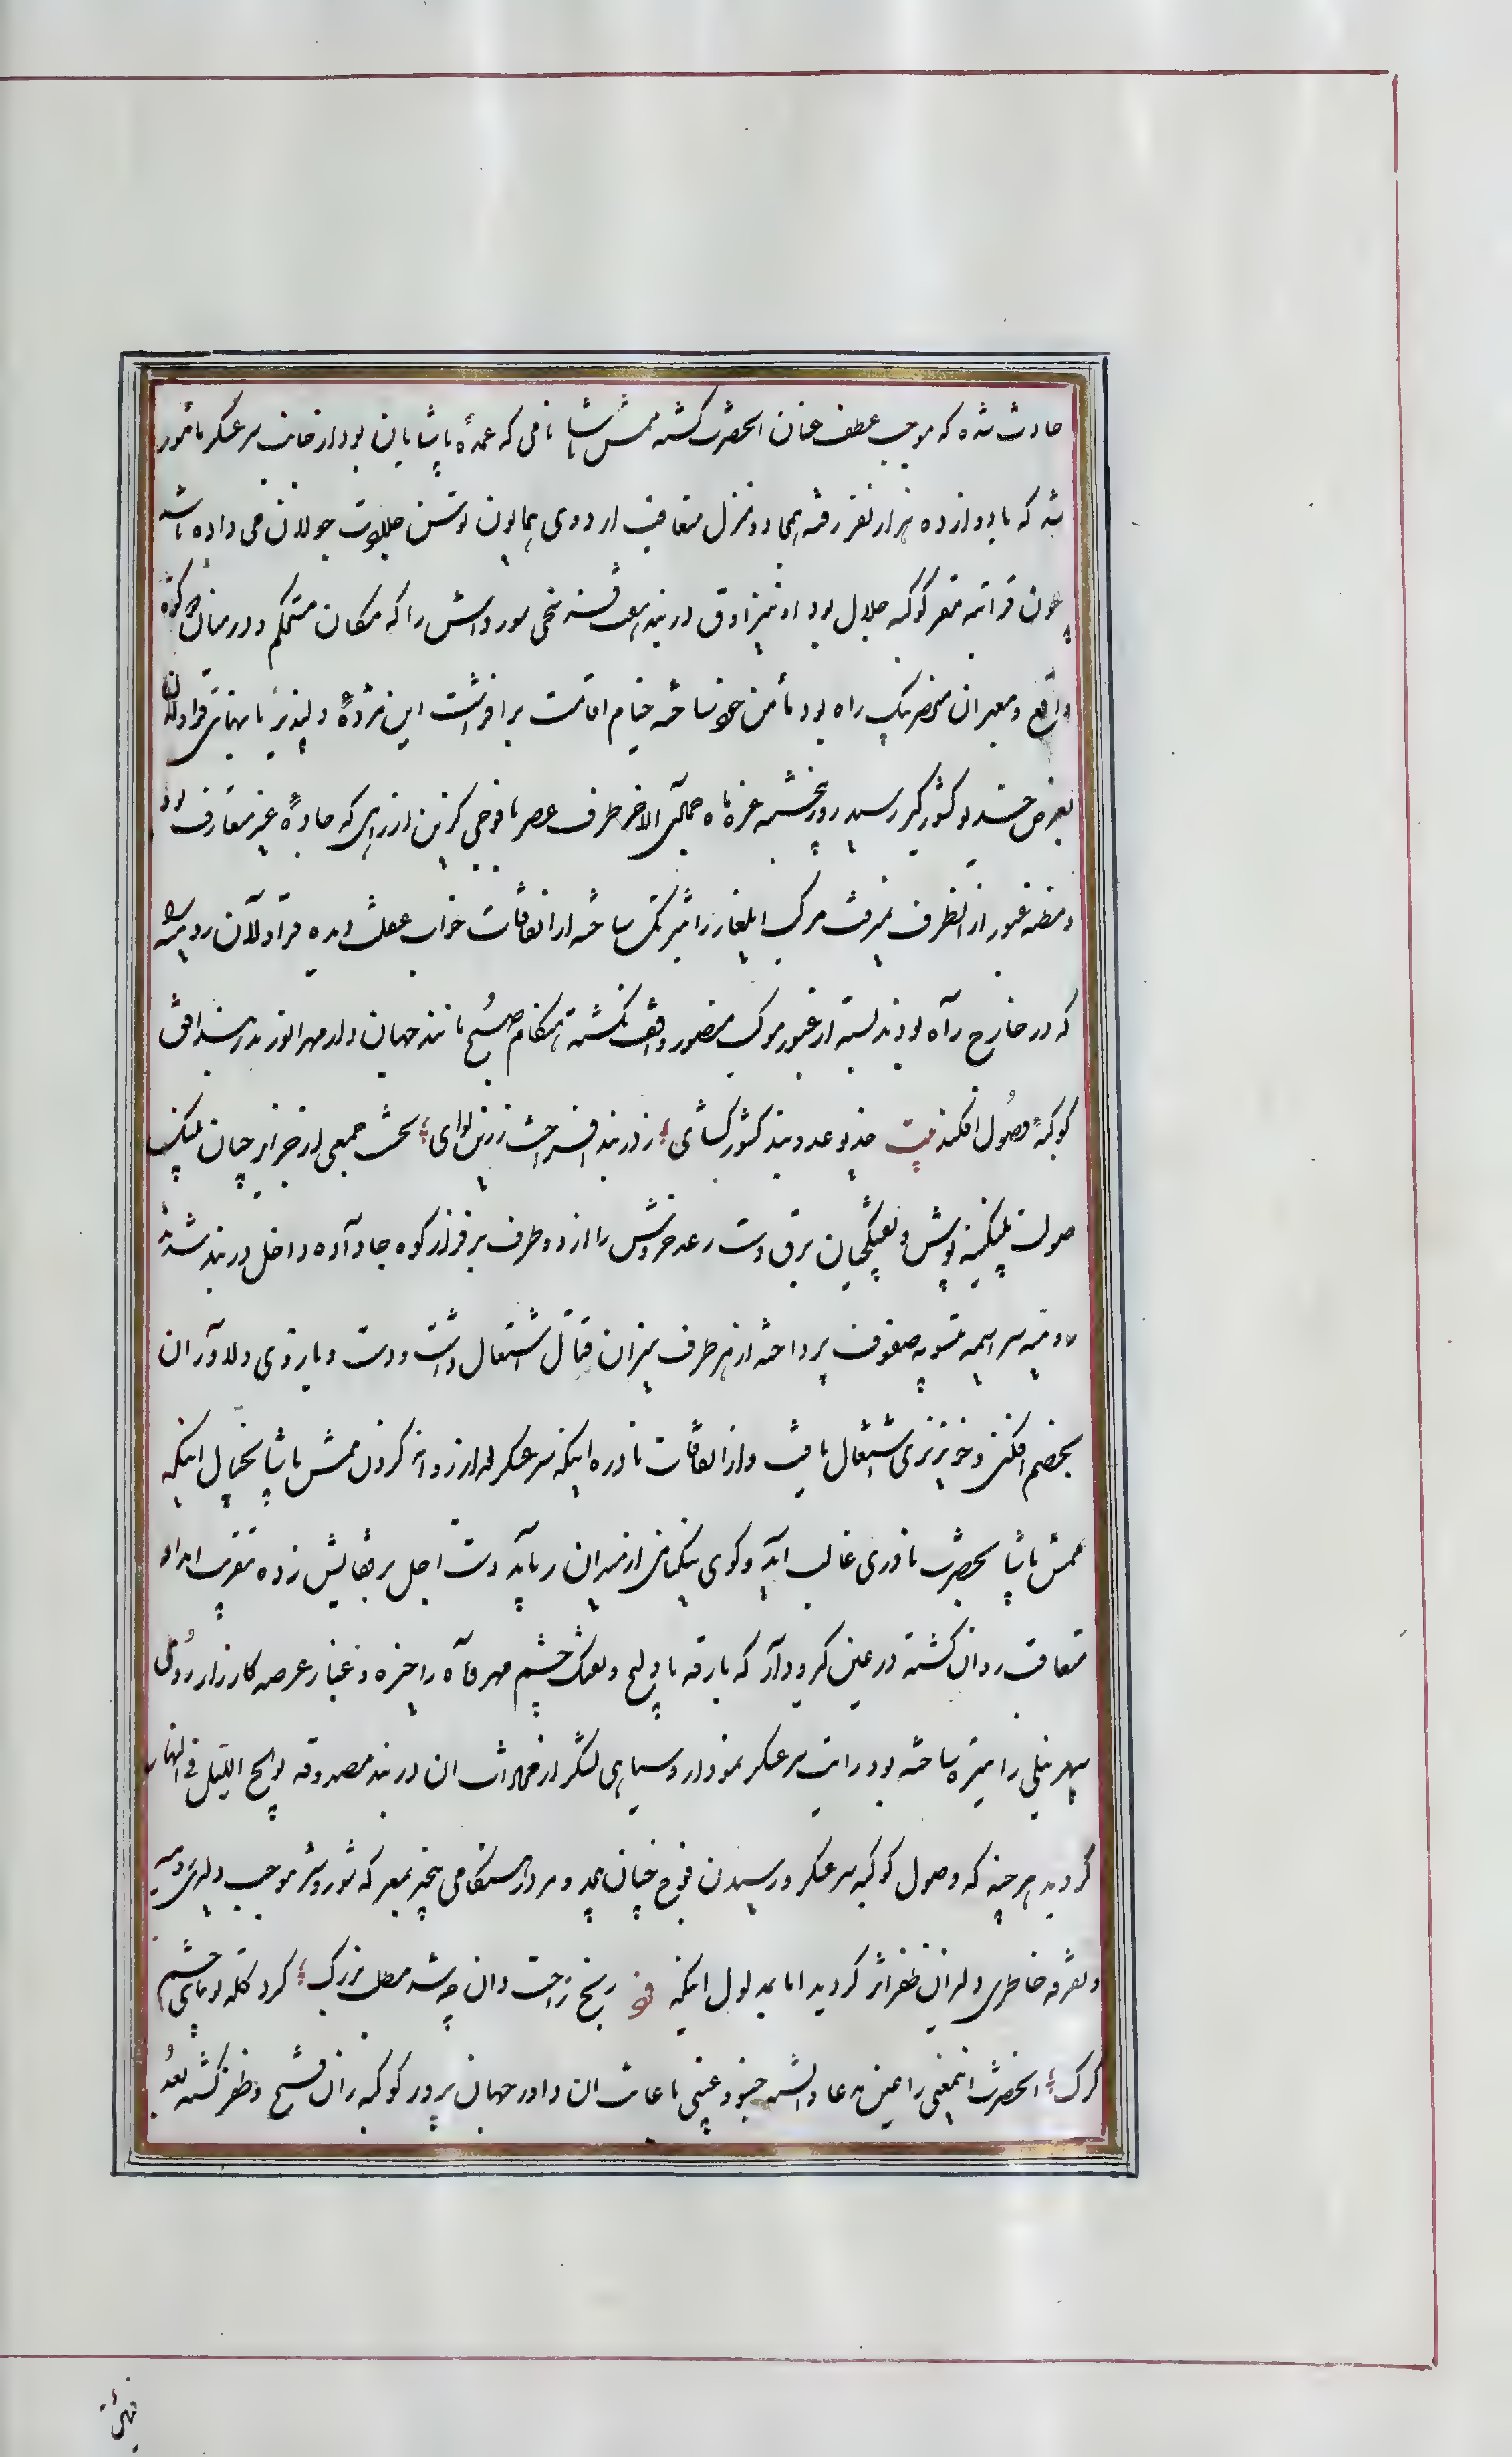 حادث شده که موجب عطف عنان آنحضرت گشته ممش پاشا نامی که عمدهٔ پاشایان بود از جانب سرعسکر مأمور
شد که با دوازده هزار نفر رفته همه جا دو منزل متعاقب اردوی همایون توسن جلادت جولان می داده باشد
چون قراتپه مقر کوکبه جلال بود او نیز آق دربند را که مکان مستحکم و در میان دو کوه
واقع و معبر آن منحصر بیک راه بود مأمن خود ساخته خیام اقامت برافراشت این مژدهٔ دلپذیر بانهای قراولان
بعرض خدیو کشورگیر رسید روز پنجشنبه غره ماه جمادی الاخر طرف عصر با فوجی گزین از راهی که جادهٔ غیر متعارف بود
و مظنه عبور از آنطرف نمیرفت مرکب ایلغار را تیزتک ساخته از اتفاقات خواب غفلت دیده قراولان رومیه را
که در خارج راه بودند بسته از عبور موکب منصور واقف نگشته هنگام صبح مانند جهان دار مهر انور بدربند افق
کوکبهٔ وصول افکند بیت خدیو عدوبند کشورگشای ؛ ز دربند افراخت زرین لوای ؛ نخست جمعی از جزایرچیان پلنگ
صولت پلنگینه پوش و تفنگچیان برق دست رعد خروش را از دو طرف بر فراز کوه جا داده داخل دربند شدند
رومیه سراسیمه بتسویه صفوف پرداخته از هر طرف نیران قتال اشتعال داشت و دست و بازوی دلاوران
بخصم افکنی و خونریزی اشتغال یافت و از اتفاقات نادره اینکه سرعسکر بعد از روانه کردن ممش پاشا بخیال اینکه
ممش پاشا بحضرت نادری غالب آید و گوی نیکنامی از میدان رباید دست اجل بر قفایش زده بتقریب امداد
متعاقب روان گشته در عین گیر و دار که بارقه پادلیج و تفنگ چشم مهر و ماه را خیره و غبار عرصه کارزار روی
سپهر نیلی را تیره ساخته بود رایت سرعسکر نمودار و سیاهی لشکر از فضای آن دربند مصدوقه یولج اللیل فی النهار
گردید هر چند که وصول کوکبه سرعسکر و رسیدن فوج چنان بیحد و مر در هنگامی بیخبر موجب دلیری رومیه
و تفرقه خاطر دلیران ظفر اثر گردید اما بمدلول اینکه رنج زاحت دان چو شد مطلب بزرگ ؛ گرد گله توتیای چشم
گرگ ؛ آنحضرت اینمعنی را عین مدعا دانسته جنود غیبی باعانت آن داور جهان پرور کوکبه ران فتح و ظفر گشته بعد